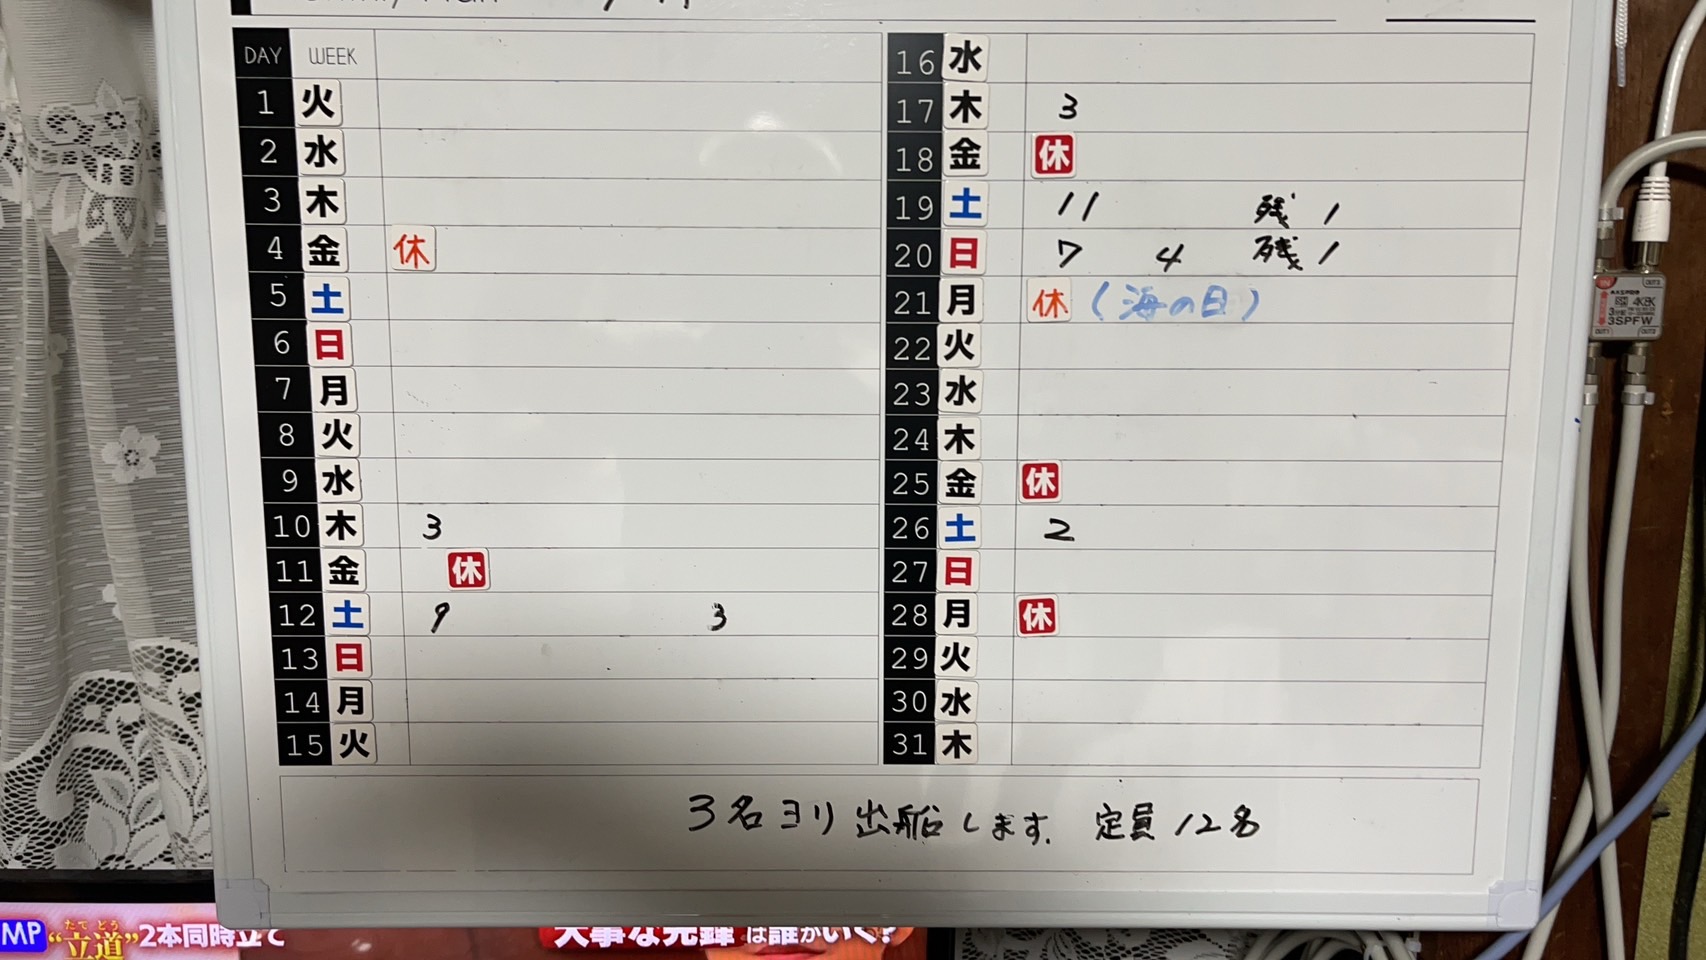 DAY WEEK
1 火
2 水
3 木
4 金 休
5 土
6 日
7 月
8 火
9 水
10 木 3
11 金 休
12 土 9 3
13 日
14 月
15 火
16 水
17 木 3
18 金 休
19 土 11 残 1
20 日 7 4 残 1
21 月 休 (海の日)
22 火
23 水
24 木
25 金 休
26 土 2
27 日
28 月 休
29 火
30 水
31 木
3名ヨリ出船します. 定員12名
MP "立道" 2本同時立て
たてどう
は誰がいく?
4K8K
3SPFW
OUT1
OUT2